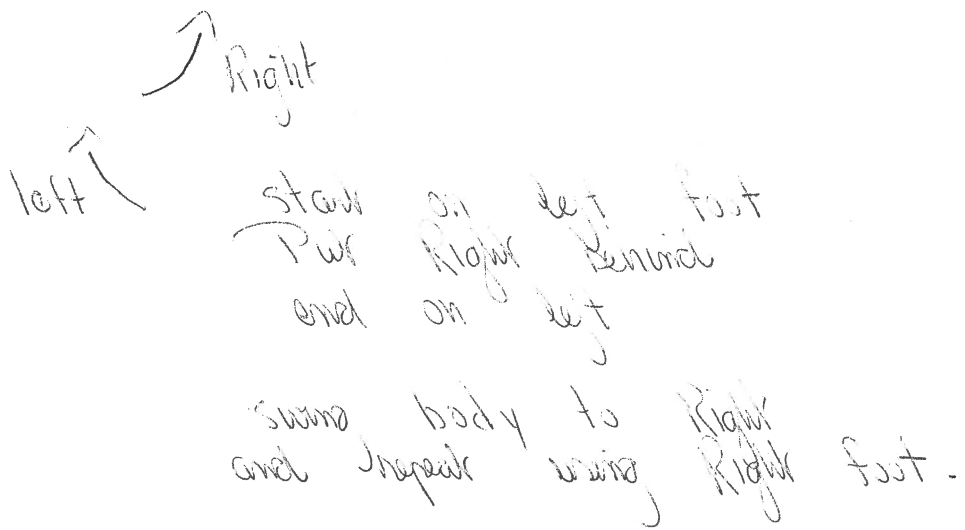 Right
left
start on left foot
Put Right Behind
end on left
swing body to Right
and repeat using Right foot.